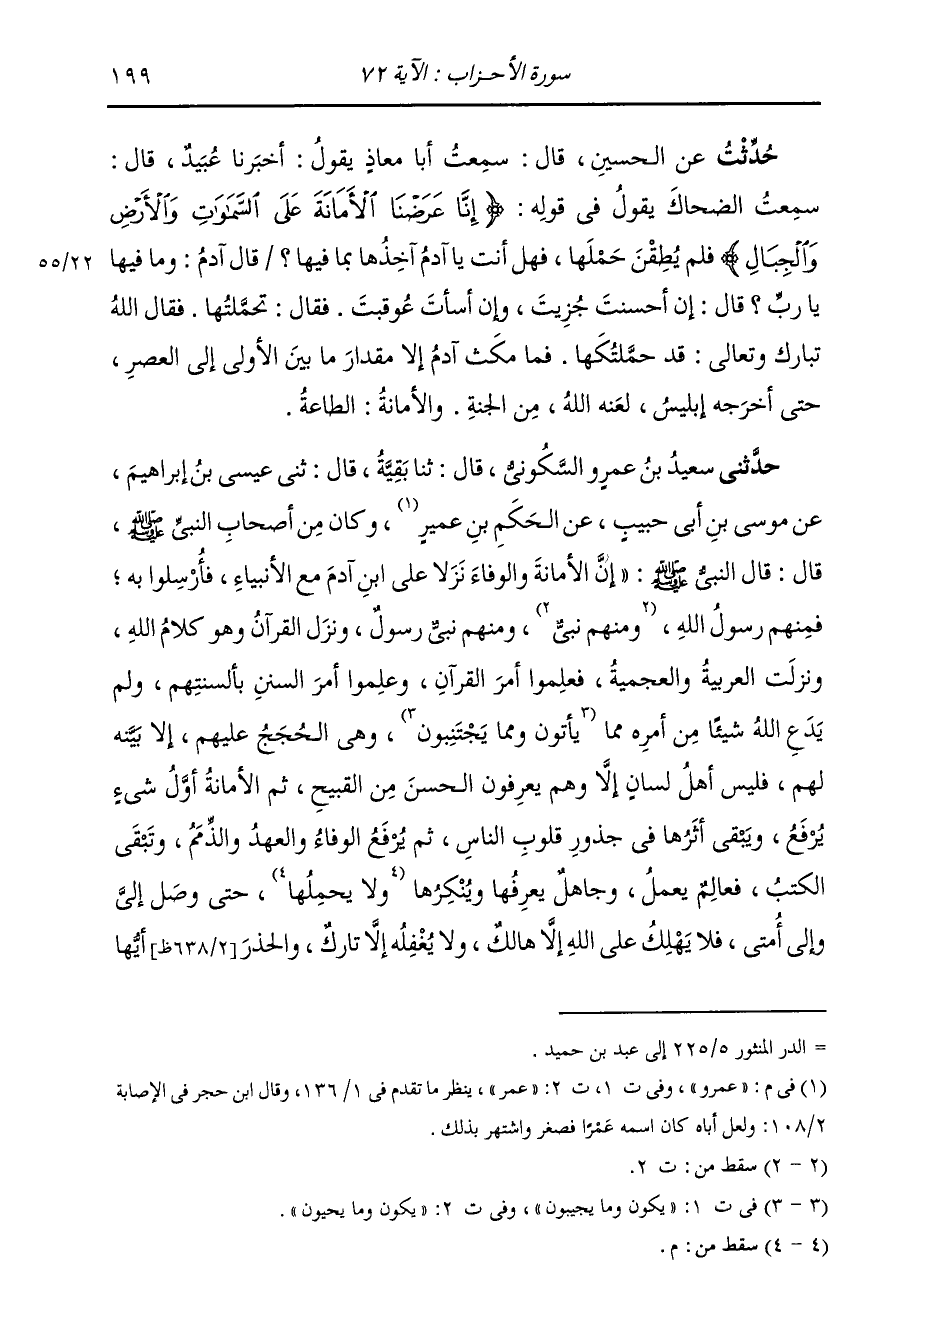 سورة الأحزاب : الآية ٧٢ ١٩٩
حُدِّثْتُ عن الحسينِ ، قال : سمِعتُ أبا معاذٍ يقولُ : أخبَرنا عُبَيدٌ ، قال :
سمِعتُ الضحاكَ يقولُ فى قولِه : ﴿ إِنَّا عَرَضْنَا ٱلْأَمَانَةَ عَلَى ٱلسَّمَٰوَٰتِ وَٱلْأَرْضِ
وَٱلْجِبَالِ ﴾ فلم يُطِقْنَ حَمْلَها ، فهل أنت يا آدمُ آخِذُها بما فيها ؟ / قال آدمُ : وما فيها ٥٥/٢٢
يا ربِّ ؟ قال : إن أحسنتَ جُزِيتَ ، وإن أسأتَ عُوقبتَ . فقال : تحمَّلتُها . فقال اللهُ
تبارك وتعالى : قد حمَّلتُكَها . فما مكَث آدمُ إلا مقدارَ ما بينَ الأولى إلى العصرِ ،
حتى أخرَجه إبليسُ ، لعَنه اللهُ ، مِن الجنةِ . والأمانةُ : الطاعةُ .
حدَّثنى سعيدُ بنُ عمرٍو السَّكُونىُّ ، قال : ثنا بَقِيَّةُ ، قال : ثنى عيسى بنُ إبراهيمَ ،
عن موسى بنِ أبى حبيبٍ ، عن الحَكَمِ بنِ عميرٍ(١) ، وكان مِن أصحابِ النبىِّ ﷺ ،
قال : قال النبىُّ ﷺ : « إنَّ الأمانةَ والوفاءَ نَزَلا على ابنِ آدمَ مع الأنبياءِ ، فأُرْسِلوا به ؛
فمِنهم رسولُ اللهِ ، (٢ومنهم نبىٌّ٢) ، ومنهم نبىٌّ رسولٌ ، ونزَل القرآنُ وهو كلامُ اللهِ ،
ونزلَت العربيةُ والعجميةُ ، فعلِموا أمرَ القرآنِ ، وعلِموا أمرَ السننِ بألسنتِهم ، ولم
يَدَعِ اللهُ شيئًا مِن أمرِه مما (٣يأتون ومما يَجْتَنِبون٣) ، وهى الحُجَجُ عليهم ، إلا بَيَّنه
لهم ، فليس أهلُ لسانٍ إلَّا وهم يعرِفون الحسنَ مِن القبيحِ ، ثم الأمانةُ أوَّلُ شىءٍ
يُرْفَعُ ، ويَبْقى أثَرُها فى جذورِ قلوبِ الناسِ ، ثم يُرْفَعُ الوفاءُ والعهدُ والذِّمَمُ ، وتَبْقَى
الكتبُ ، فعالِمٌ يعملُ ، وجاهلٌ يعرِفُها ويُنْكِرُها (٤ولا يحمِلُها٤) ، حتى وصَل إلىَّ
وإلى أُمتى ، فلا يَهْلِكُ على اللهِ إلَّا هالكٌ ، ولا يُغْفِلُه إلَّا تاركٌ ، والحذرَ [٦٣٨/٢ظ] أيُّها
= الدر المنثور ٢٢٥/٥ إلى عبد بن حميد .
(١) فى م : « عمرو » ، وفى ت ١، ت ٢: « عمر » ، ينظر ما تقدم فى ١/ ١٣٦، وقال ابن حجر فى الإصابة
١٠٨/٢: ولعل أباه كان اسمه عَمْرًا فصغر واشتهر بذلك .
(٢ - ٢) سقط من : ت ٢.
(٣ - ٣) فى ت ١: « يكون وما يجيبون » ، وفى ت ٢: « يكون وما يحيون » .
(٤ - ٤) سقط من : م .